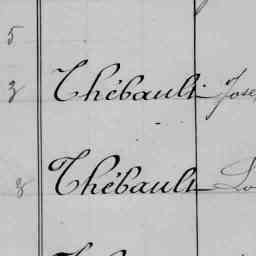 5
3 Thébault Jose
3 Thébault Lo